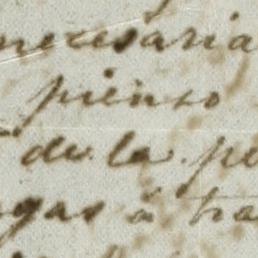 necesaria
pienso
de la pe
gas á tra